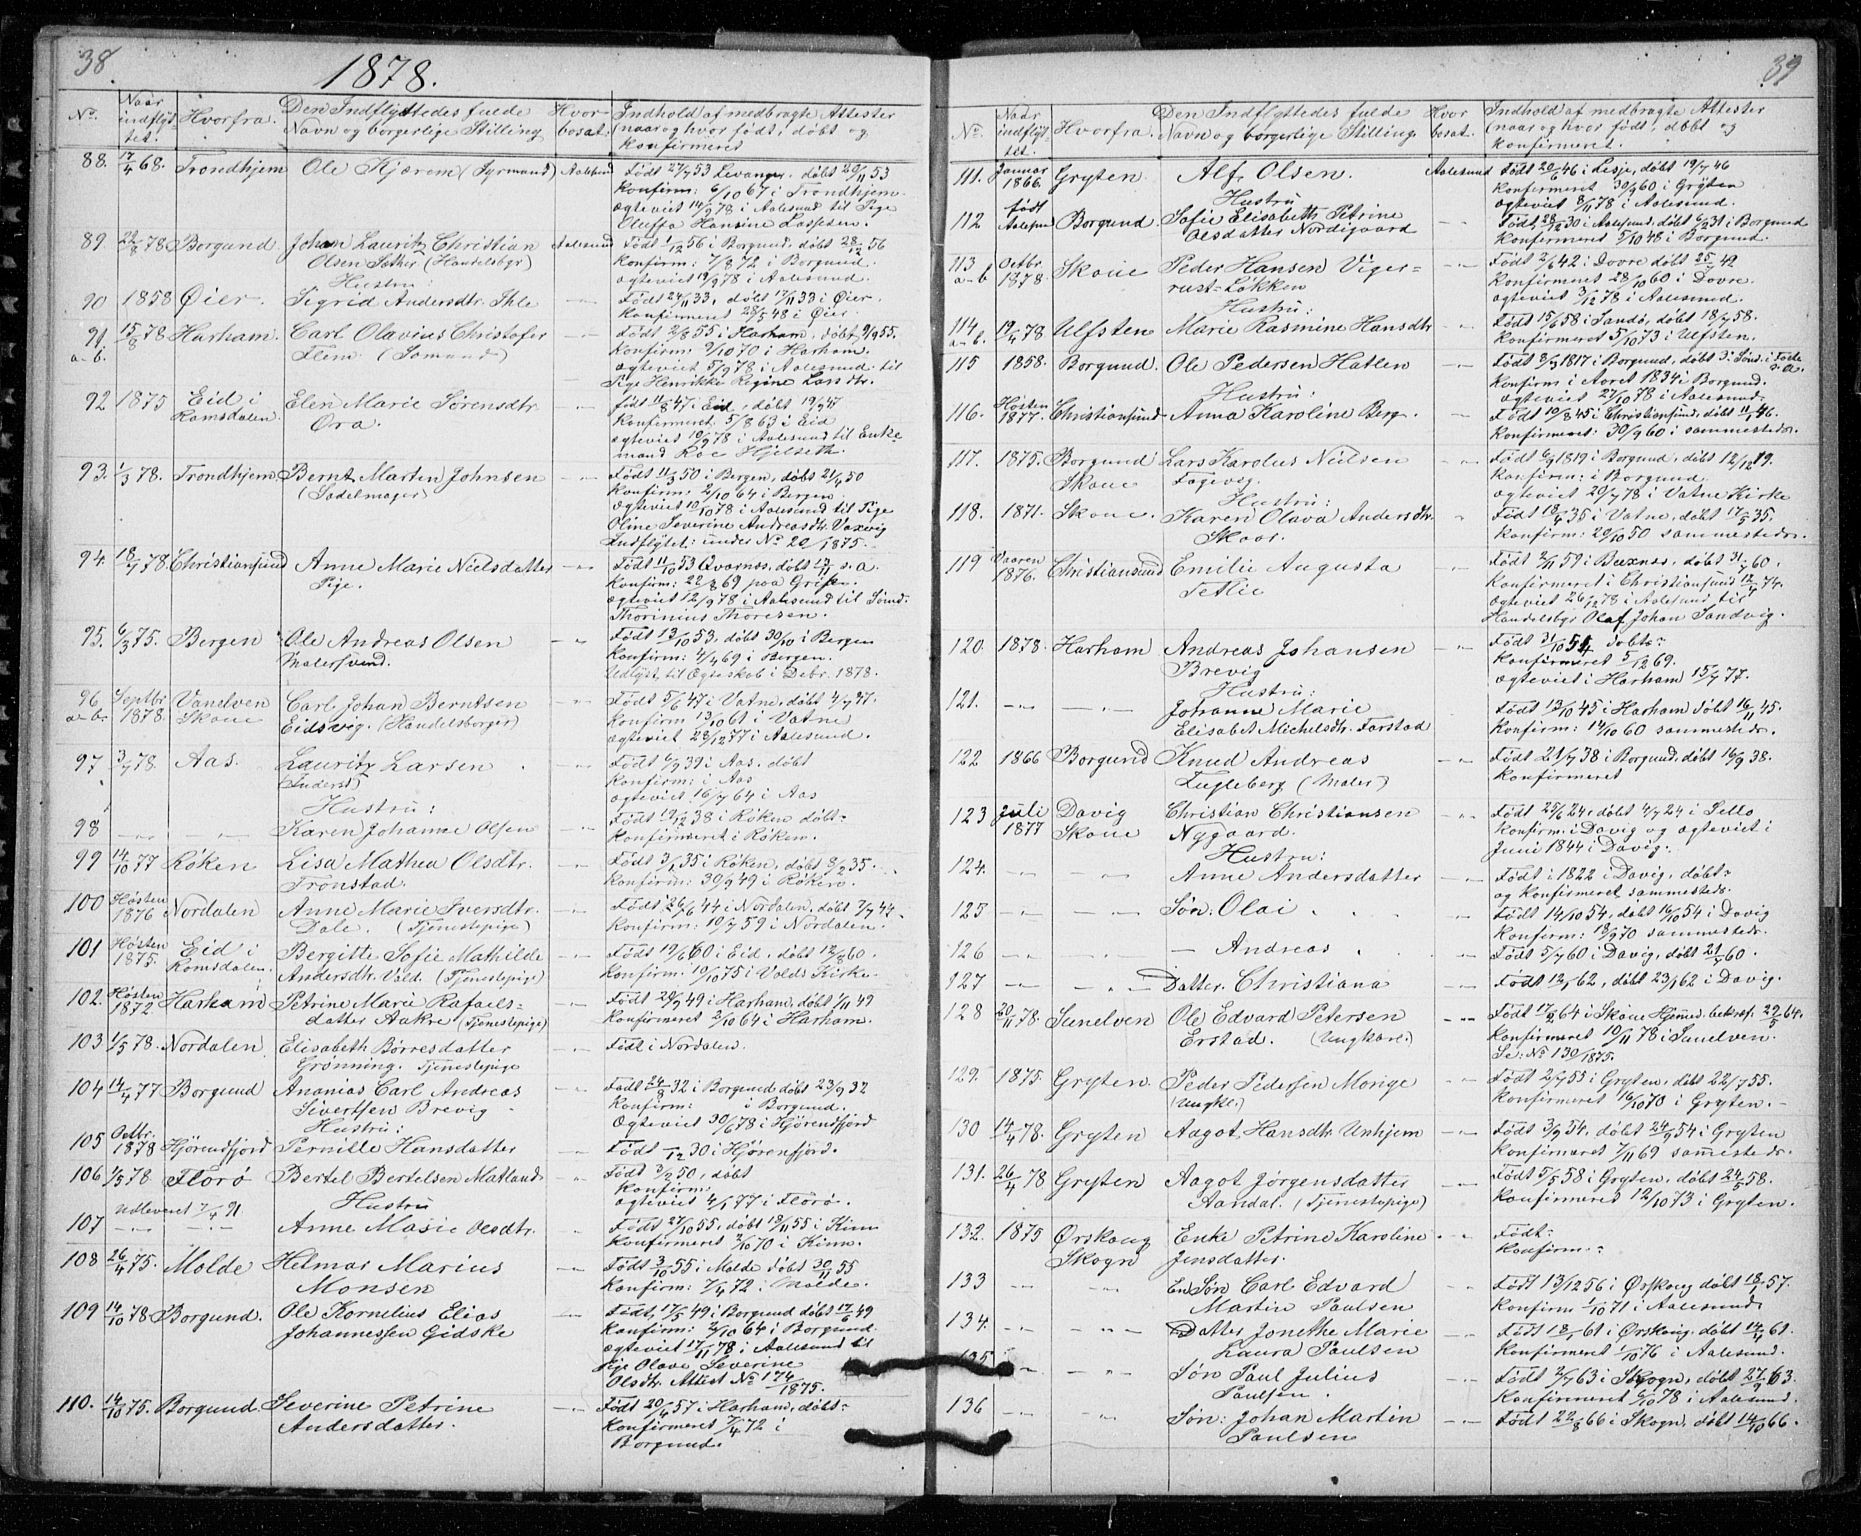 38
1878.
No. Naar indflyttet. Hvorfra. Den Indflyttedes fulde Navn og borgerlige Stilling. Hvor bosat. Indhold af medbragte Attester (naar og hvor født, døbt og konfirmeret
88. 17/4 68. Trondhjem Ole Kjærem (Fyrmand) Aalesund Født 27/7 53 Levanger. døbt 20/11 53
Konfirm: 6/10 67 i Trondhjem.
ægteviet 14/9 78 i Aalesund til Pige
Oluffa Hansine Lassesen.
89. 22/8 78 Borgund. Johan Lauritz Christian Aalesund Født 1/12 56 i Borgund, døbt 28/12 56
Olsen Sæther (Handelsbgr) Konfirm: 7/8 72 i Borgund.
ægteviet 19/9 78 i Aalesund.
Hustru:
90 1858 Øier. Sigrid Andersdtr. Ihle Født 24/11 33, døbt 7/11 33 i Øier.
Konfirmeret 28/5 48 i Øier.
91 a-b. 15/8 78 Harham. Carl Olavius Christofer Født 2/8 55 i Harham, døbt 9/9 55.
Flem (Sømand) Konfirm 9/10 70 i Harham.
ægteviet 5/9 78 i Aalesund til
Pige Henrikke Regine Larsdtr.
92 1875 Eid i Romsdalen. Elen Marie Sørensdtr. født 11/8 47 i Eid, døbt 19/9 47
Ora. Konfirmeret. 5/8 63 i Eid
ægteviet 19/9 78 i Aalesund til Enke
mand Roe Hjelseth.
93. 1/3 78. Trondhjem Bernt Marten Johnsen Født 11/3 50 i Bergen, døbt 21/4 50
(Sadelmager) Konfirm 2/10 64 i Bergen
ægteviet 10/10 78 i Aalesund til Pige
Oline Severine Andreasdtr. Vaxvig
Indflytet: under No 20/1875.
94. 18/7 78. Christiansund Anne Marie Nielsdatter Født 11/10 53 Qvarnes, døbt 13/11 s. a.
Pige. Konfirm: 22/8 69 paa Gripen.
ægteviet 12/9 78 i Aalesund til Sømd.
Thorinius Thoresen.
95. 6/3 75. Bergen Ole Andreas Olsen Født 13/10 53, døbt 30/10 i Bergen
Malersvend. Konfirm: 4/4 69 i Bergen.
Udlyst til Ægteskab i Debr. 1878.
96 a-b. Septbr 1878. Vanelven Skoue Carl Johan Berntsen Født 5/6 47 i Vatne, døbt 4/7 47.
Eidsvig. (Handelsborger) Konfirm 13/10 61 i Vatne
ægteviet 28/12 77 i Aalesund.
97 3/7 78. Aas. Lauritz Larsen Født 6/9 39 i Aas. døbt
(Inderst) Konfirm: i Aas
ægteviet 16/7 64 i Aas
Hustru:
98 Karen Johanne Olsen Født 19/12 38 i Røken døbt-
Konfirmeret i Røken.
99 14/10 77 Røken Lisa Mathea Olsdtr. Født 3/1 35 i Røken, døbt 8/2 35.
Tronstad. Konfirm: 30/9 49 i Røken.
100 Høsten 1876 Nordalen Anne Marie Iversdtr. Født 26/6 44 i Nordalen, døbt 7/7 44.
Dale. (Tjenestepige) Konfirm: 10/7 59 i Nordalen.
101 Høsten 1875. Eid i Romsdalen. Bergitte Sofie Mathilde Født 19/6 60 i Eid, døbt 12/8 60.
Andersdtr. Vold. (Tjenestepige) Konfirm. 10/10 75 i Volds Kirke.
102. Høsten 1872. Harham Petrine Marie Rafaels- Født 20/9 49 i Harham, døbt 1/11 49
datter Aakre (Tjenestepige) Konfirmeret 2/10 64 i Harham.
103 1/5 78. Nordalen Elisabeth Børresdatter Født i Nordalen.
Grønning. Tjenestepige
104 14/4 77 Borgund Ananias Carl Andreas Født 24/8 32 i Borgund døbt 23/9 32
Sivertsen Brevig Konfirm: i Borgund.
Ægteviet 30/6 78 i Hjørenfjord
Hustru:
105 Octbr. 1878 Hjørundfjord Pernille Hansdatter Født /12 30 i Hjørenfjord.
106 1/5 78 Florø Bertel Bertelsen Matland Født 3/2 50, døbt
Konfirm:
ægteviet 4/1 77 i Florø.
Udleveret 7/4 91 Hustru
107 Anne Marie Olsdtr. Født 27/10 55, døbt 18/11 55 i Kinn
Konfirmeret 2/10 70 i Kinn.
108 26/4 75. Molde Helmar Marius Født 3/10 55 i Molde døbt 30/11 55
Monsen Konfirm: 7/4 72 i Molde.
109 14/10 78 Borgund. Ole Kornelius Elias Født, 17/5 49 i Borgund døbt 17/6 49
Johannessen Gidske Konfirm: 2/10 64 i Borgund
ægteviet 17/11 78 i Aalesund til
Pige Olave Severine
Olsdtr. Attest No 174/1875.
110. 14/10 75. Borgund. Severine Petrine Født 20/4 57 i Harham, døbt-
Andersdatter. Konfirmeret 7/4 72 i
Borgund.
39
No. Naar indflyttet. Hvorfra. Den Indflyttedes fulde Navn og borgerlige Stilling. Hvor bosat. Indhold af medbragte Attester (naar og hvor født, døbt og konfirmeret.
111. Januar 1866. Gryten Alf Olsen. Aalesund Født 20/6 46 i Lesje, døbt 19/7 46
Konfirmeret 30/9 60 i Gryten
ægteviet 8/11 78 i Aalesund.
Hustru
112 født Borgund Sofie Elisabeth Petrine Født 28/12 30 i Aalesund, døbt 6/2 31 i Borgund
Olsdatter Nordigaard Konfirmeret 5/10 48 i Borgund.
113 a-b Octbr. 1878. Skoue Peder Hansen Viger- Født 2/6 42 i Dovre døbt 25/7 42
rust-Løkken Konfirmeret 28/10 60 i Dovre.
ægteviet 3/12 78 i Aalesund
Hustru:
114 a-b. 19/4 78 Ulfsten Marie Rasmine Hansdtr Født 15/6 58 i Sandø, døbt 18/7 58.
Konfirmeret 5/10 73 i Ulfsten.
115 1858. Borgund. Ole Pedersen Hatlen Født 8/3 1817 i Borgund, døbt 3. Sønd. i Faste s. a.
Konfirm i Aaret 1834 i Borgund.
ægteviet 27/10 78 i Aalesund.
Hustru:
116. Høsten 1877. Christiansund Anna Karoline Berg. Født 10/8 45 i Christiansund, døbt 11/1 46.
Konfirmeret: 30/9 60 i sammesteds.
117. 1875. Borgund Skoue Lars Karolus Nielsen Født 6/9 1819 i Borgund, døbt 12/12 19.
Fagevig. Konfirm: i Borgund
ægteviet 20/7 78 i Vatne Kirke
Hustru:
118. 1871. Skoue. Karen Olava Andersdtr. Født 18/4 35 i Vatne, døbt 17/5 35.
Skaar. Konfirm: 20/10 50 sammesteds.
119 Vaaren 1876. Christiansund Emilie Augusta Født 2/11 59 i Buxnes, døbt 31/7 60.
Tetlie Konfirmeret i Christiansund 12/4 74.
ægteviet 26/12 78 i Aalesund til
Handelsbgr Olaf Johan Sandvig.
120. 1878. Harham Andreas Johansen Født 31/10 54 døbt-
Brevig Konfirmeret 5/12 69.
ægteviet i Harham 15/7 77.
Hustru:
121. Johanne Marie Født 13/10 45 i Harham døbt 16/11 45.
Elisabet Michelsdtr. Farstad Konfirm: 14/10 60 sammesteds.
122 1866 Borgund Knud Andreas Født 21/7 38 i Borgund, døbt 16/9 38.
Fugleberg (Maler) Konfirmeret
123 Juli 1877 Davig Skoue Christian Christiansen Født 25/6 24, døbt 4/7 24 i Selle
Nygaard. Konfirm: i Davig og ægteviet i
Juni 1844 i Davig.
Hustru:
124. Anne Andersdatter Født i 1822 i Davig, døbt-
og Konfirmeret sammesteds.
125 Søn: Olai Født 14/10 54, døbt 16/10 54 i Davig
Konfirm: 18/9 70 sammesteds.
126 — Andreas Født 5/7 60 i Davig, døbt 21/7 60.
127 Datter. Christiana Født 12/1 62, døbt 23/1 62 i Davig.
128 20/11 78. Sunelven Ole Edvard Petersen Født 17/2 64 i Skoue Hjemd. bekræf. 29/5 64.
Erstad. (Ungkarl.) Konfirmeret 10/11 78 i Sunelven.
Se: No 130/1875.
129. 1875. Gryten. Peder Pedersen Morige Født 2/7 55 i Gryten, døbt 22/7 55.
(Ungkl.) Konfirmeret 16/10 70 i Gryten.
130 14/4 78. Gryten Aagot Hansdtr Unhjem Født 3/9 54, døbt 24/9 54 i Gryten
Konfirmeret 7/11 69 sammesteds.
131. 26/4 78 Gryten Aagot Jørgensdatter Født 5/5 58 i Gryten, døbt 24/5 58.
Aandal. (Tjenestepige) Konfirmeret 12/10 73 i Gryten.
132. 1875 Ørskoug Skogn Enke Petrine Karoline Født:
Jensdatter. Konfirm.:
133 En Søn Carl Edvard Født 13/12 56 i Ørskoug døbt 18/1 57.
Martin Paulsen Konfirm 1/10 71 i Aalesund
134. Datter Jonethe Marie Født 18/1 61 i Ørskoug, døbt 14/4 61.
Laura Paulsen Konfirmeret 1/10 76 i Aalesund.
135 Søn Paul Julius Født 2/7 63 i Skogn, døbt 27/9 63.
Paulsen. Konfirmeret 6/10 78 i Aalesund.
136 Søn: Johan Martin Født 22/8 66 i Skogn, døbt 14/10 66.
Paulsen